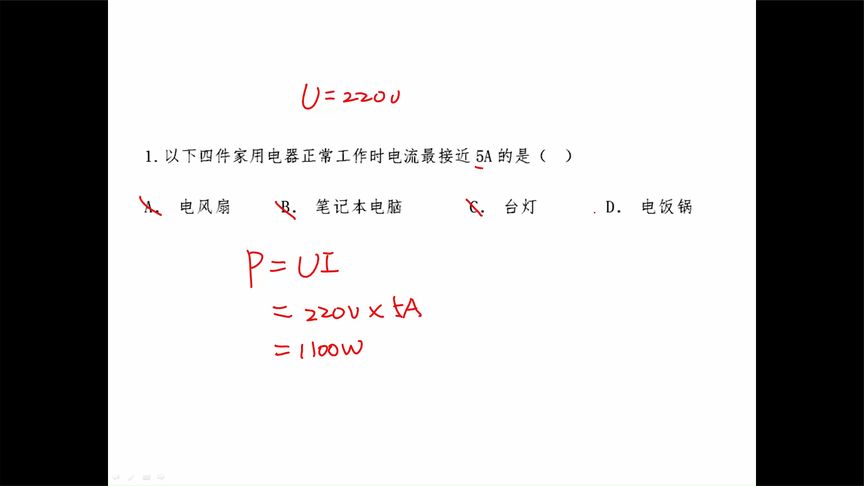 U=220V
1. 以下四件家用电器正常工作时电流最接近 5A 的是（  ）
A. 电风扇 B. 笔记本电脑 C. 台灯 D. 电饭锅
P=UI
=220V×5A
=1100W